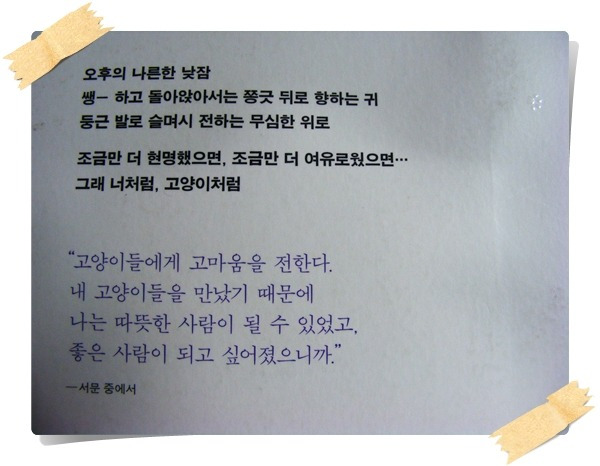 오후의 나른한 낮잠
쌩– 하고 돌아앉아서는 쫑긋 뒤로 향하는 귀
둥근 발로 슬며시 전하는 무심한 위로
조금만 더 현명했으면, 조금만 더 여유로웠으면…
그래 너처럼, 고양이처럼
“고양이들에게 고마움을 전한다.
내 고양이들을 만났기 때문에
나는 따뜻한 사람이 될 수 있었고,
좋은 사람이 되고 싶어졌으니까.”
—서문 중에서